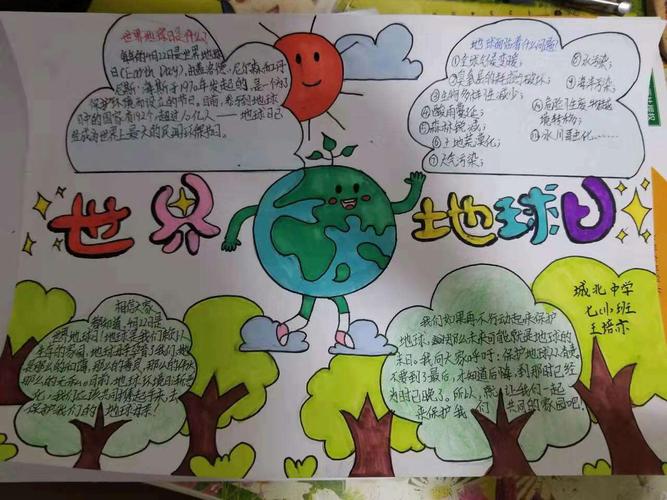 世界地球日是什么?
每年的4月22是世界地球
日(Earth Day),由盖洛德·尼尔森和丹
尼斯·海斯于1970年发起的,是一个为了
保护环境而设立的节日。目前,参与到地球
日的国家有192个,超过10亿人——地球日已
经成为世界上最大的民间环保节日。
地球面临着什么问题?
①全球气候变暖;
②臭氧层的耗损与破坏;
③生物多样性减少;
④酸雨蔓延;
⑤森林锐减;
⑥土地荒漠化;
⑦大气污染;
⑧水污染;
⑨海洋污染;
⑩危险性废物越
境转移;
⑪冰川恶化……
世界地球日
城北中学
七(1)班
王培亦
相信大家
都知道,4月22日是
世界地球日!地球是我们人
生存的家园,地球母亲
保护我们的地球母亲!
我们如果再不行动起来保护
地球,
末日。我向大家呼吁:保护地球从点滴
不要到了最后,才知道后悔,到那时已经
为时已晚了。所以,就让我们一起
来保护我们共同的家园吧!